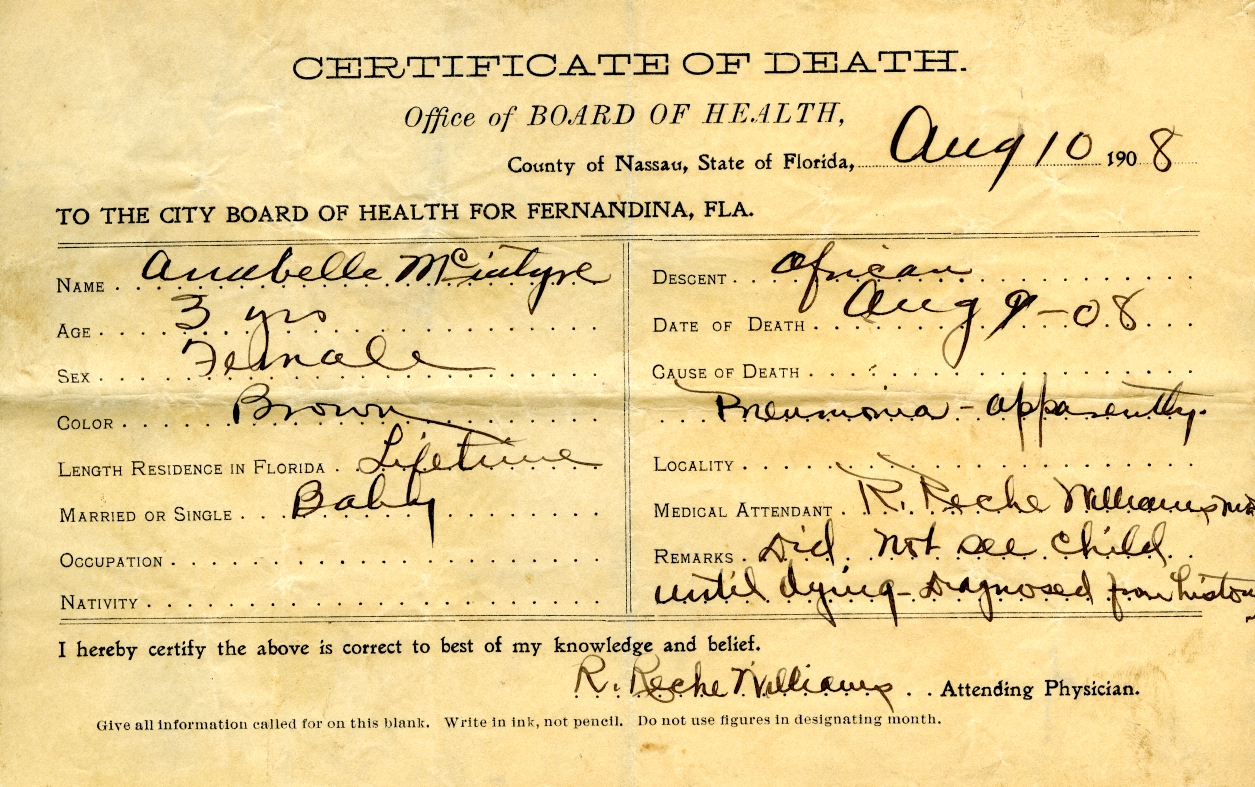 CERTIFICATE OF DEATH.
Office of BOARD OF HEALTH,
County of Nassau, State of Florida, Aug 10 1908
TO THE CITY BOARD OF HEALTH FOR FERNANDINA, FLA.
NAME . . Anabelle McIntyre
AGE . . 3 yrs
SEX . . Female
COLOR . . Brown
LENGTH RESIDENCE IN FLORIDA . Lifetime
MARRIED OR SINGLE . . Baby
OCCUPATION
NATIVITY
DESCENT . . African
DATE OF DEATH . . Aug 9-08
CAUSE OF DEATH
Pneumonia - apparently.
LOCALITY
MEDICAL ATTENDANT . R. Reche Williams MD
REMARKS . Did not see child
until dying - Diagnosed from history
I hereby certify the above is correct to best of my knowledge and belief.
R. Reche Williams . . Attending Physician.
Give all information called for on this blank. Write in ink, not pencil. Do not use figures in designating month.